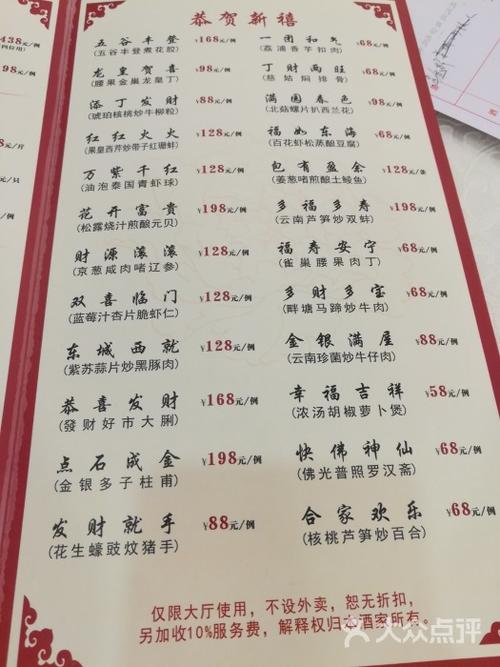 恭贺新禧
五谷丰登 ¥168元/例
(五谷丰登煮花胶)
龙皇贺喜 ¥98元/例
(腰果金巢龙皇丁)
添丁发财 ¥88元/例
(琥珀核桃炒牛柳粒)
红红火火 ¥128元/例
(果皇西芹炒带子红珊蚌)
万紫千红 ¥128元/例
(油泡泰国青虾球)
花开富贵 ¥198元/例
(松露烧汁煎酿元贝)
财源滚滚 ¥128元/例
(京葱咸肉啫辽参)
双喜临门 ¥128元/例
(蓝莓汁杏片脆虾仁)
东城西就 ¥128元/例
(紫苏蒜片炒黑豚肉)
恭喜发财 ¥168元/例
(發财好市大脷)
点石成金 ¥198元/例
(金银多子柱甫)
发财就手 ¥88元/例
(花生蠔豉炆猪手)
一团和气 ¥68元/例
(荔浦香芋扣肉)
丁财两旺 ¥68元/例
(慈姑焖排骨)
满园春色 ¥98元/例
(北菇螺片扒西兰花)
福如东海 ¥68元/例
(百花虾松蒸酿豆腐)
包有盈余 ¥128元/条
(姜葱啫煎酿土鲮鱼)
多福多寿 ¥198元/例
(云南芦笋炒双蚌)
福寿安宁 ¥68元/例
(雀巢腰果肉丁)
多财多宝 ¥68元/例
(畔塘马蹄炒牛肉)
金银满屋 ¥88元/例
(云南珍菌炒牛仔肉)
幸福吉祥 ¥58元/例
(浓汤胡椒萝卜煲)
快佛神仙 ¥68元/例
(佛光普照罗汉斋)
合家欢乐 ¥68元/例
(核桃芦笋炒百合)
仅限大厅使用，不设外卖，恕无折扣，
另加收10%服务费，解释权归本酒家所有。
438元/例
98元/例
78元/片
大众点评